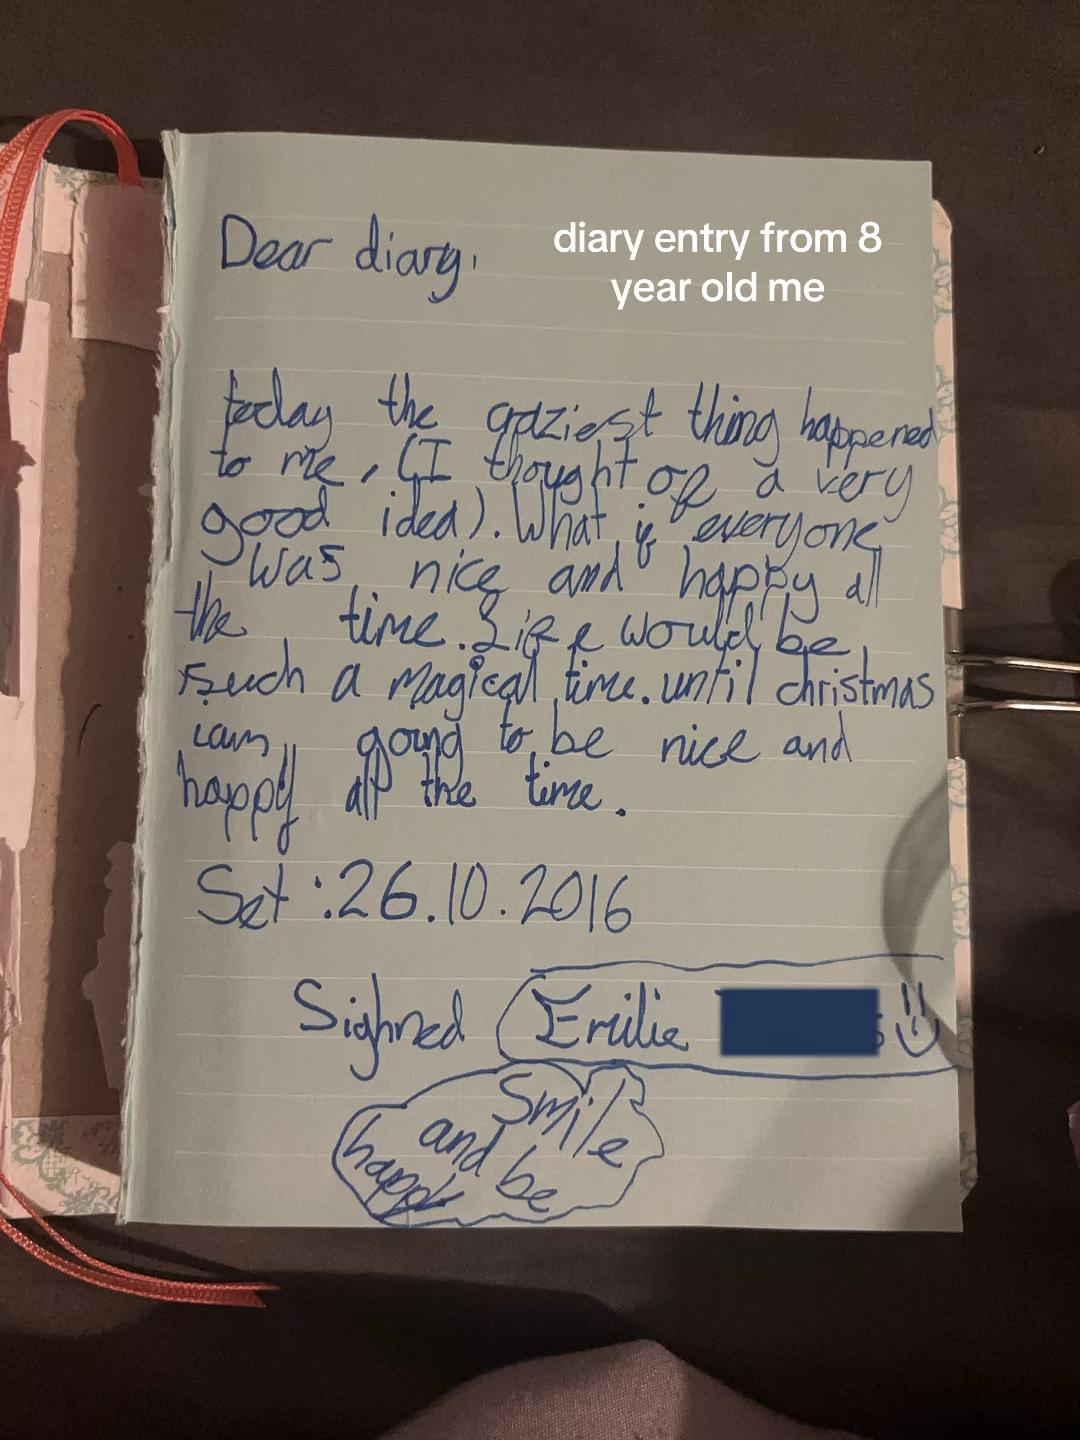 Dear diary,
diary entry from 8
year old me
today the craziest thing happened
to me, (I thought of a very
good idea). What if everyone
was nice and happy all
the time. Life would be
such a magical time. until christmas
iam going to be nice and
happy all the time.
Sat : 26.10.2016
Sighned Emilie
Smile
and be
happy